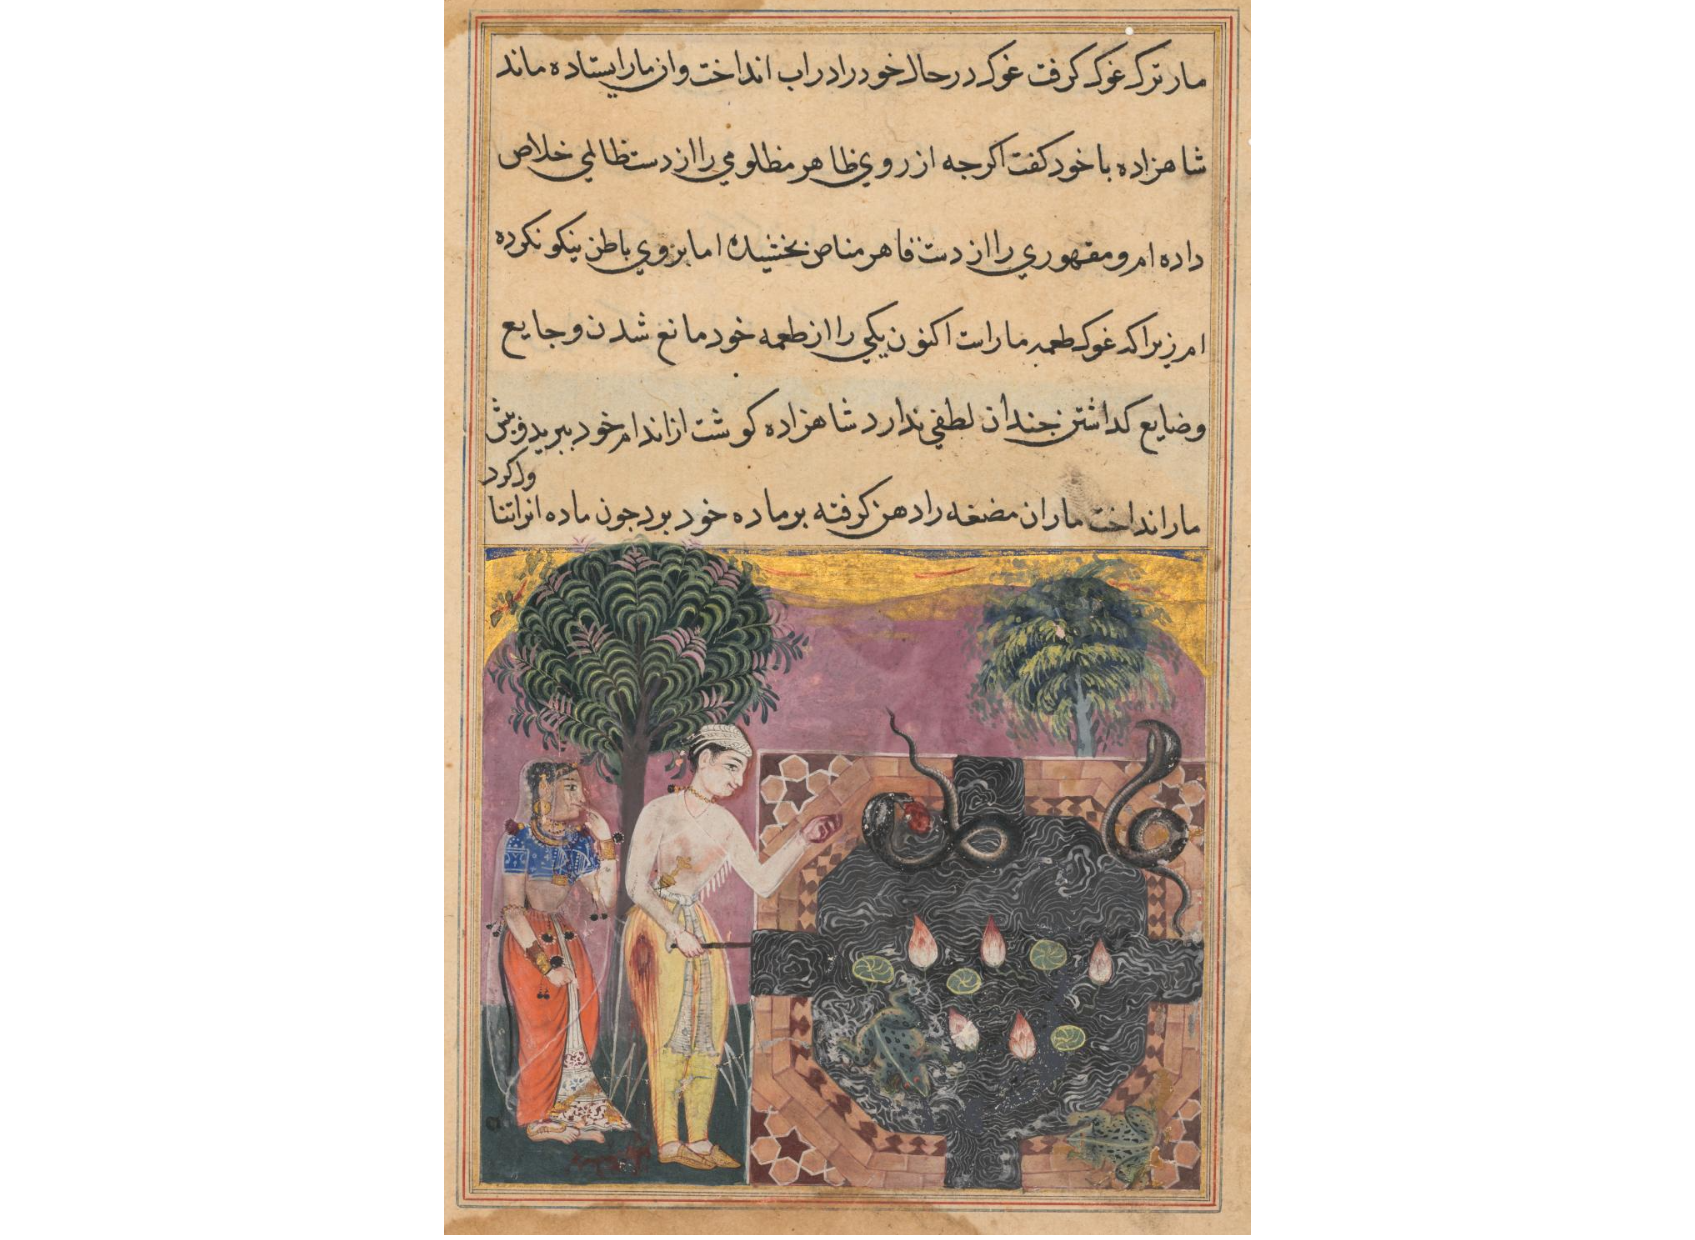 مار ترک غوک کرفت غوک در حال خود را در اب انداخت وان مار ایستاده ماند
شاهزاده با خود کفت اکرجه از روي ظاهر مظلومي را از دست ظالمي خلاص
داده ام و مقهوري را از دست قاهر مناص بخشیده اما بر روي باطن نیکو نکرده
ام زیرا که غوک طعمه مار است اکنون یکي را از طعمه خود مانع شدن و جایع
وضایع کذاشتن جندان لطفي ندارد شاهزاده کوشت از اندام خود ببرید و بیش
مار انداخت مار ان مضغه را دهن کرفته بر ماده خود برد جون ماده انرا تنا
ول کرد